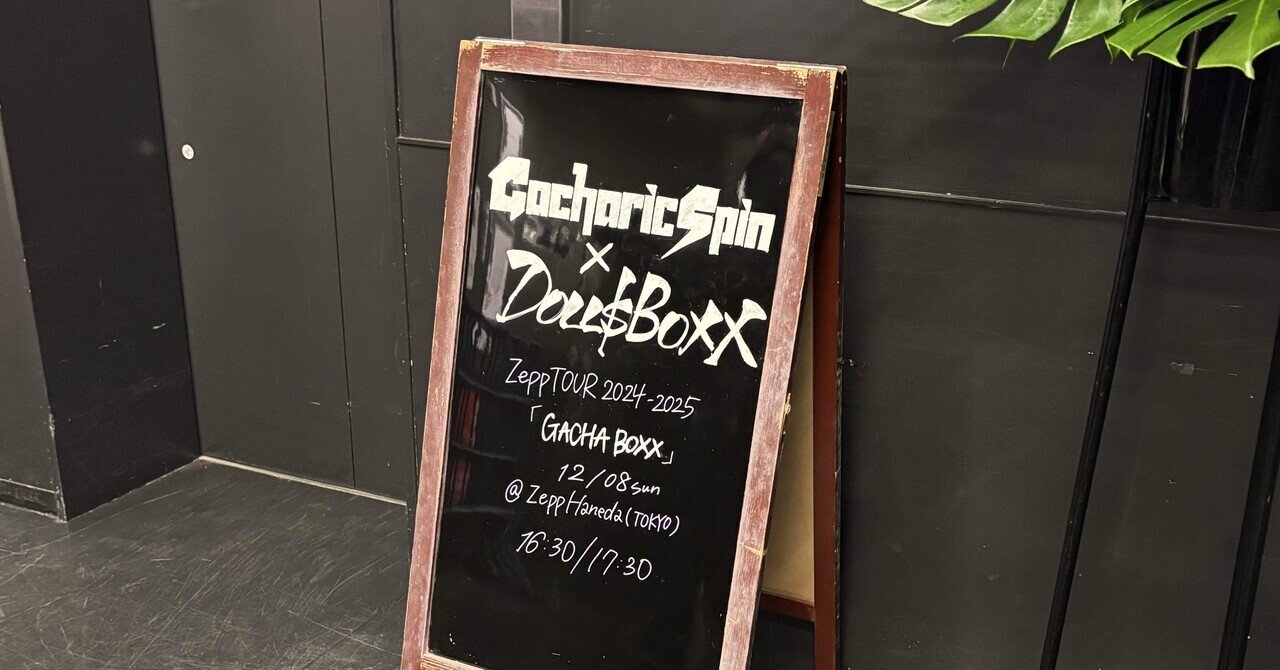 Gacharic Spin
×
Doll$Boxx
Zepp TOUR 2024-2025
「GACHA BOXX」
12/08 sun
@ Zepp Haneda (TOKYO)
16:30/17:30